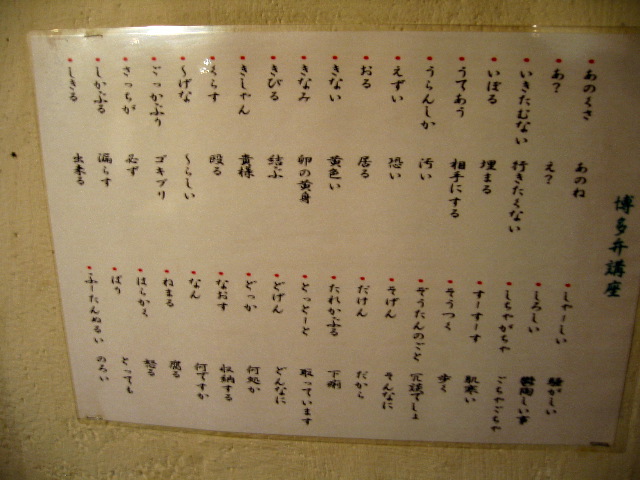 博多弁講座
あのくさ あのね
あ? え?
いきたむない 行きたくない
いぼる 埋まる
うてあう 相手にする
うらんしか 汚い
えずい 恐い
おる 居る
きない 黄色い
きなみ 卵の黄身
きびる 結ぶ
きしゃん 貴様
くらす 殴る
〜げな 〜らしい
ごっかぶり ゴキブリ
さっちが 必ず
しかぶる 漏らす
しきる 出来る
しゃーしい 騒がしい
しろしい 鬱陶しい事
しちゃがちゃ ごちゃごちゃ
すーすーす 肌寒い
そうつく 歩く
ぞうたんのごと 冗談でしょ
そげん そんなに
だけん だから
たれかぶる 下痢
とっとーと 取っています
どげん どんなに
どっか 何処か
なおす 収納する
なん 何ですか
ねまる 腐る
はらかく 怒る
ばり とっても
ふーたんぬるい のろい